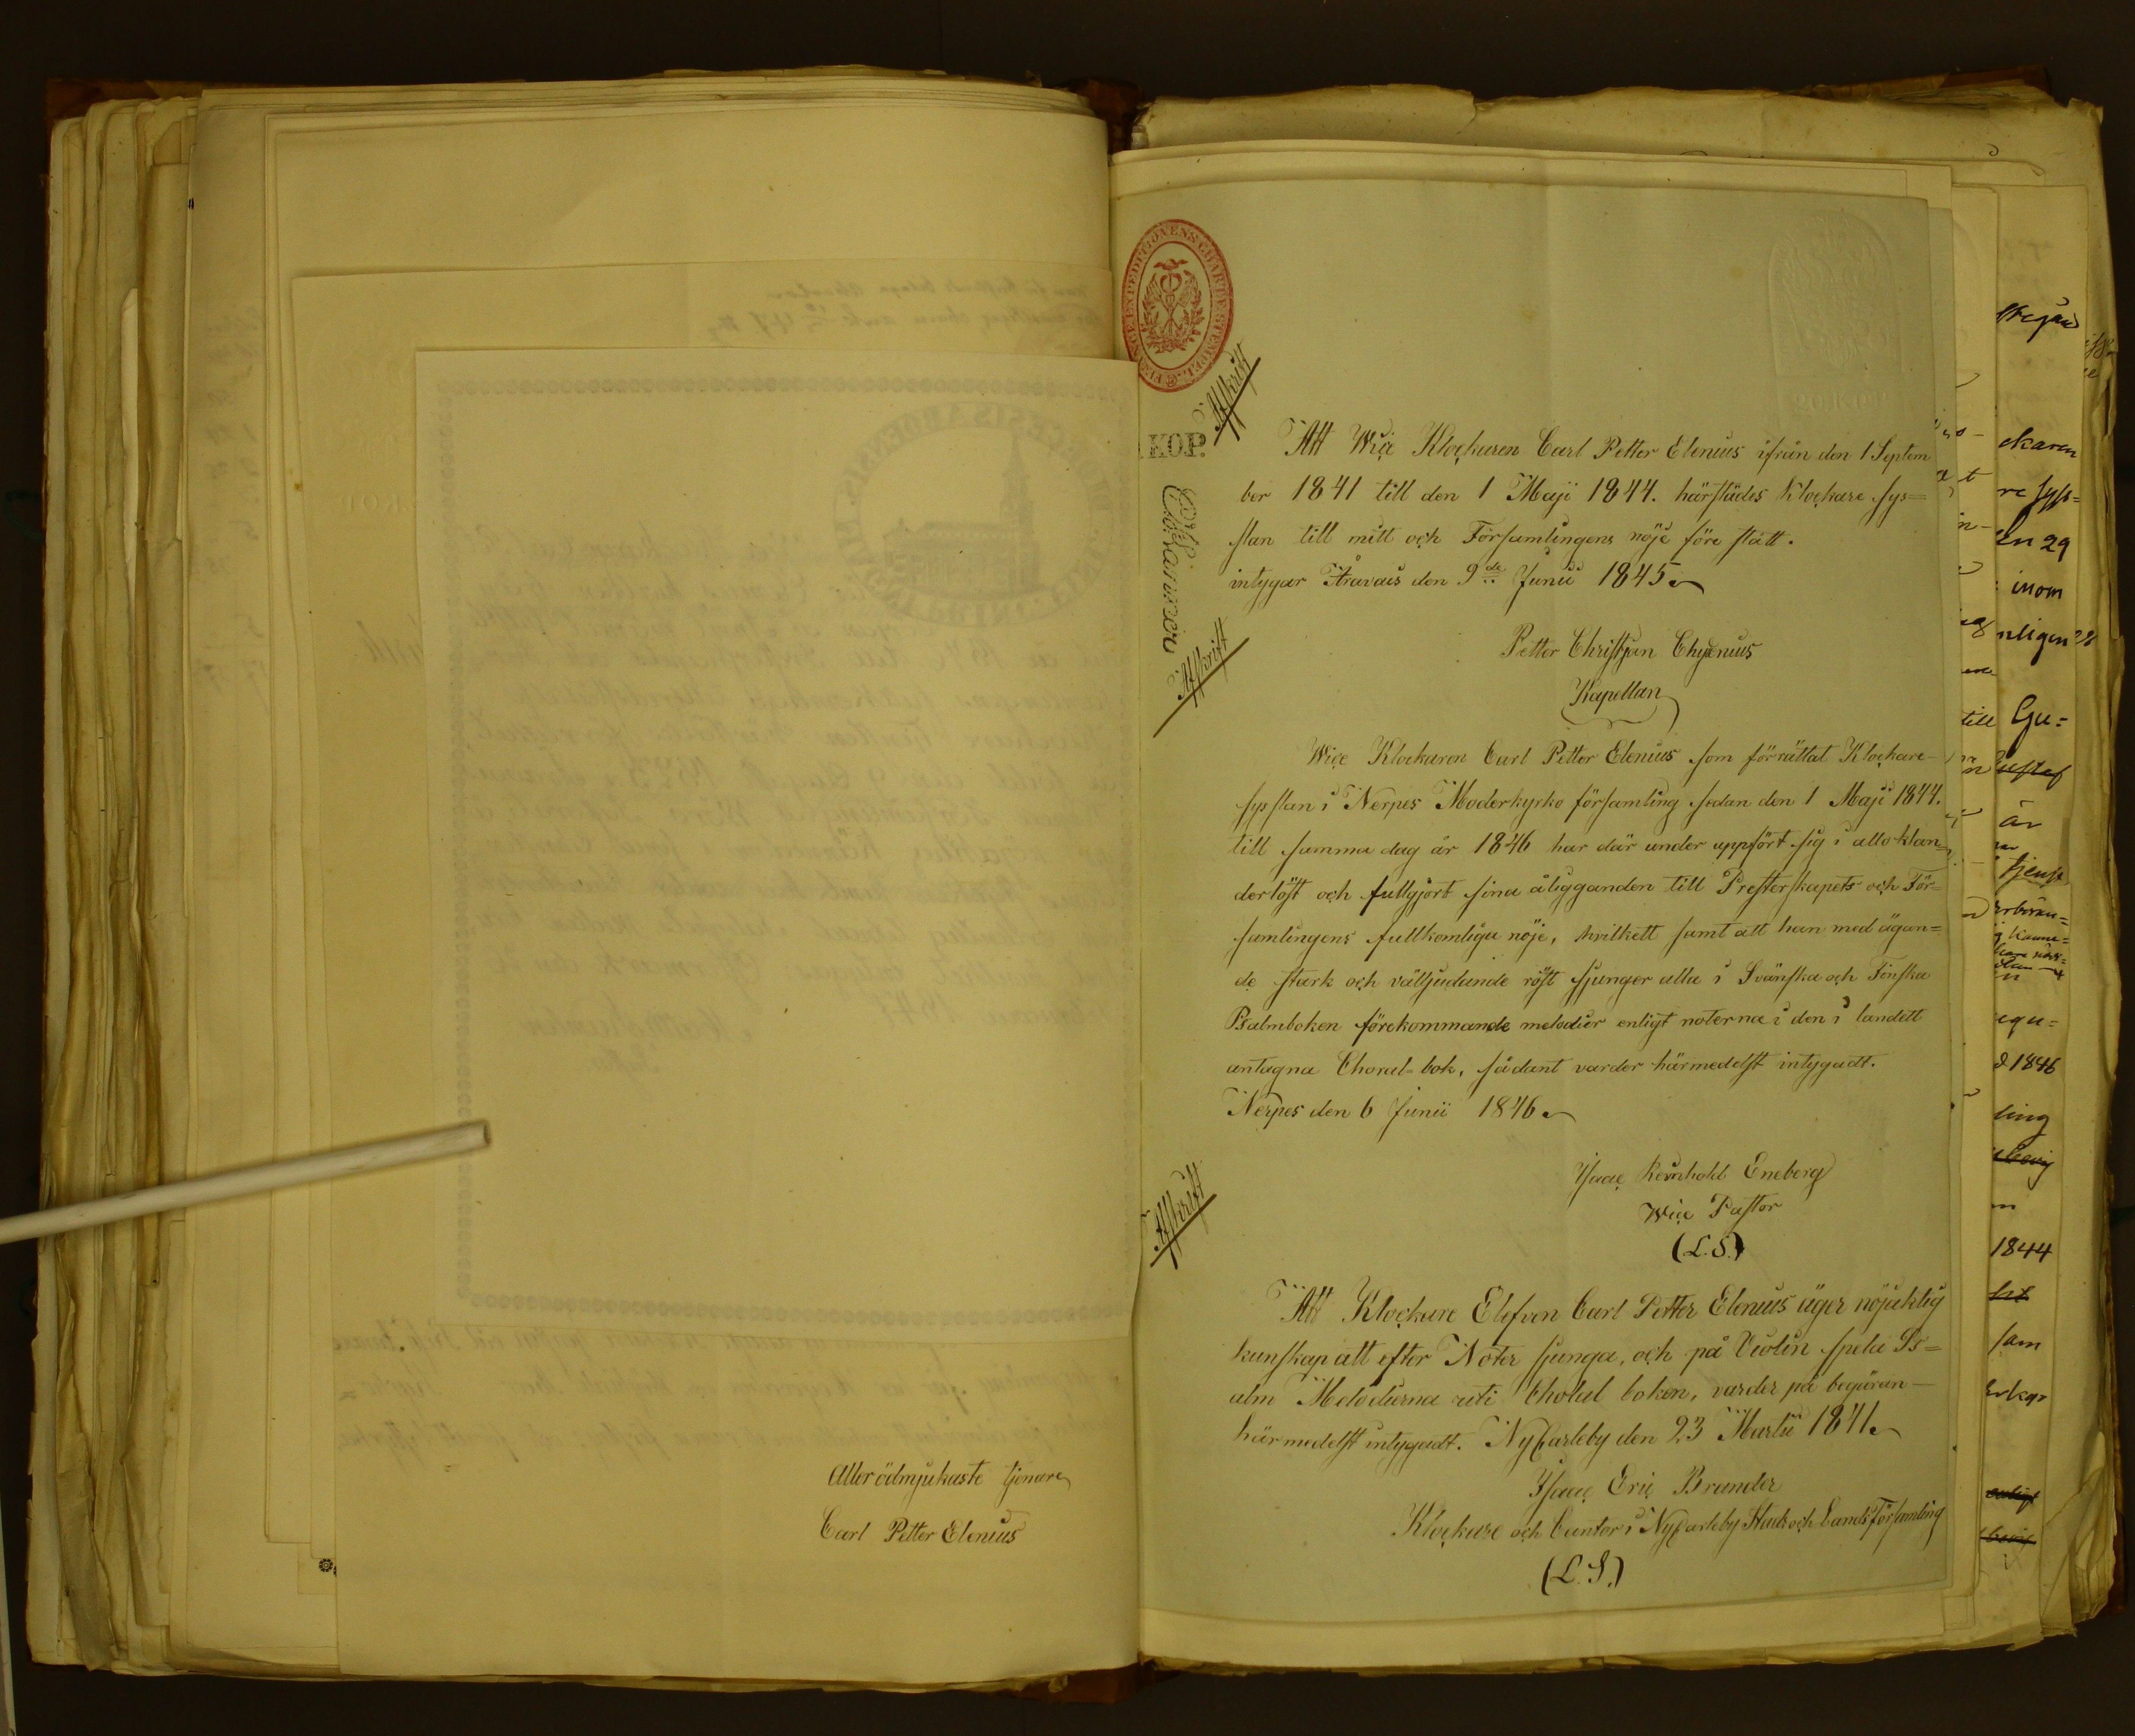 Allerödmjukaste tjenare
Carl Petter Elenius
KOP.
Afskrift
Att Wice Klockaren Carl Petter Elenius ifrån den 1 Septem
ber 1841 till den 1 Maji 1844. härstädes Klockare sys=
slan till mitt och Församlingens nöje före stått.
intygar Åravais den 9de Junii 1845.
Petter Christjan Chydenius
Kapellan
Afskrift
Wice Klockaren Carl Petter Elenius som förrättat Klockare-
sysslan i Nerpes Moderkyrko församling sedan den 1 Maji 1844.
till samma dag år 1846 har där under uppfört sig i allo klan=
derlöst och fullgjort sina åligganden till Presterskapets och För=
samlingens fullkomliga nöje, hvilkett samt att han med ägan=
de stark och välljudande röst sjunger alla i Svänska och Finska
Psalmboken förekommande melodier enligt noterna i den i landett
antagna Choral-bok, sådant varder härmedelst intygadt.
Nerpes den 6 Junii 1846.
Isaac Reinhold Eneberg
Wice Pastor
(L.S.)
Afskrift
Att Klockare Elefven Carl Petter Elenius äger nöjaklig
kunskap att efter Noter sjunga, och på Violin spela Ps=
alm Melodierna uti Choral boken, varder på begäran-
härmedelst intygadt. NyCarleby den 23 Martii 1841.
Isaac Eric Brander
Klockare och Cantor i NyCarleby Stads och Lands Församling
(L.S.)
ckaren
re sys=
en 29
inom
nligen
till Gu=
är
tjenst
1846
ling
1844
sam